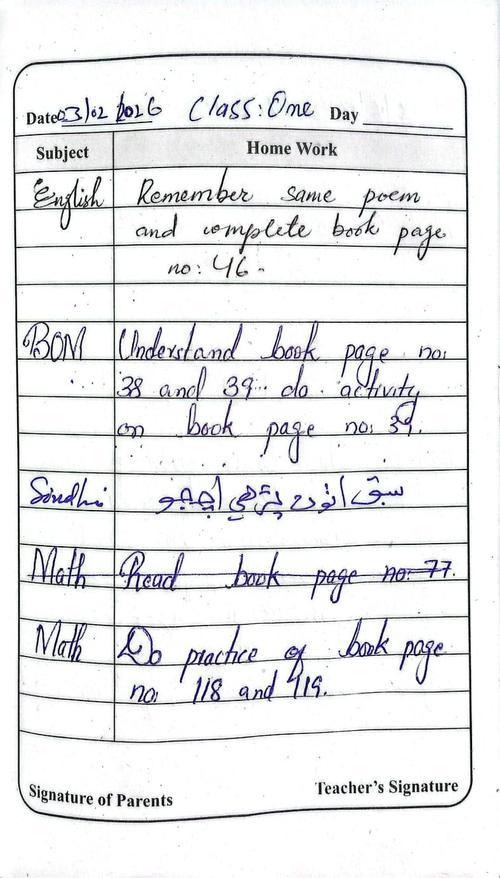 Date 03/02/2026 Class: One Day
Subject Home Work
English Remember same poem
and complete book page
no: 46.
BOM Understand book page no:
38 and 39. do activity
on book page no: 39.
Sindhi سبق پڙهي اچجو
Math Read book page no: 77.
Math Do practice of book page
no: 118 and 119.
Signature of Parents Teacher's Signature